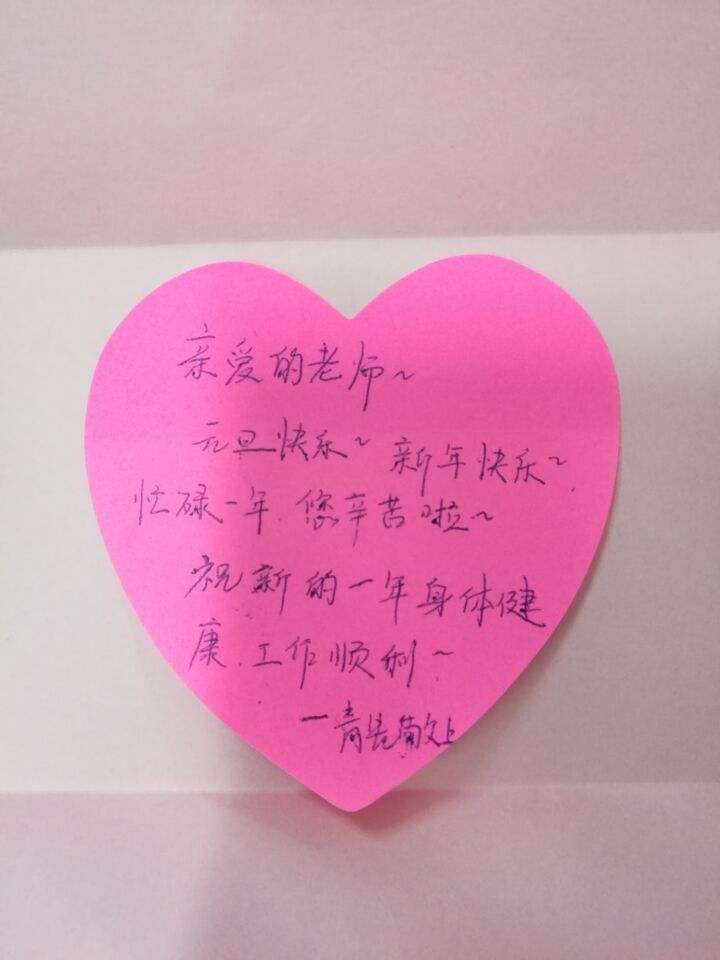 亲爱的老师~
元旦快乐~ 新年快乐~
忙碌一年,您辛苦啦~
祝新的一年身体健
康,工作顺利~
—青 敬上